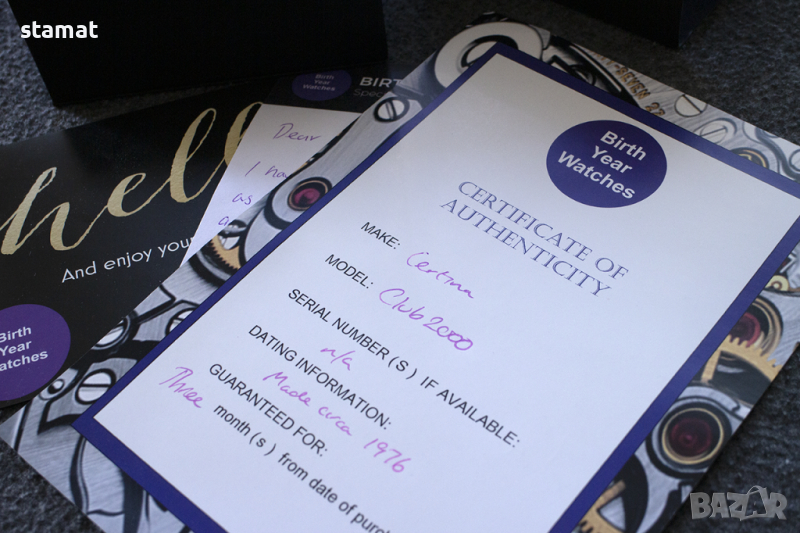 stamat
Birth
Year
Watches
BIRT
Spec
hell
And enjoy your
Dear
I ha
as
Birth
Year
Watches
Birth
Year
Watches
CERTIFICATE OF
AUTHENTICITY
MAKE:
Certina
MODEL:
Club 2000
SERIAL NUMBER(S) IF AVAILABLE:
n/a
DATING INFORMATION:
Made circa 1976
GUARANTEED FOR:
Three
month(s) from date of purch
BAZAR